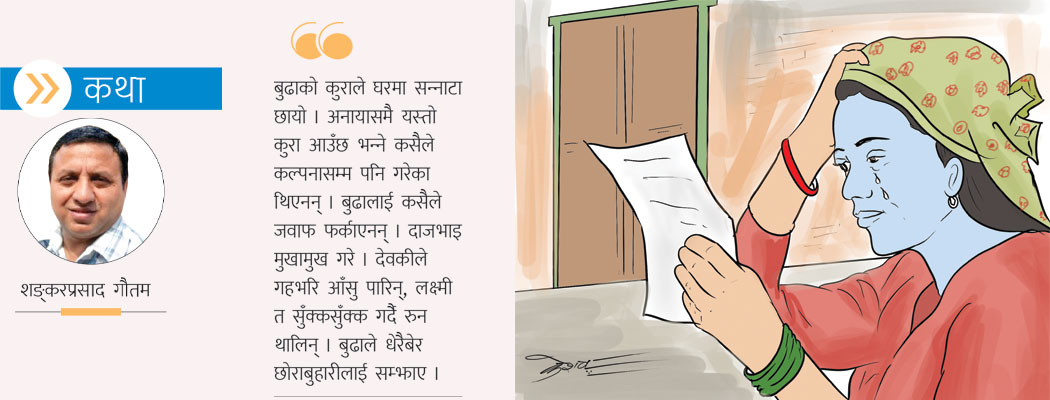 कथा
शङ्करप्रसाद गौतम
बुढाको कुराले घरमा सन्नाटा
छायो । अनायासमै यस्तो
कुरा आउँछ भन्ने कसैले
कल्पनासम्म पनि गरेका
थिएनन् । बुढालाई कसैले
जवाफ फर्काएनन् । दाजभाइ
मुखामुख गरे । देवकीले
गहभरि आँसु पारिन्, लक्ष्मी
त सुँक्कसुँक्क गर्दै रुन
थालिन् । बुढाले धेरैबेर
छोराबुहारीलाई सम्झाए ।